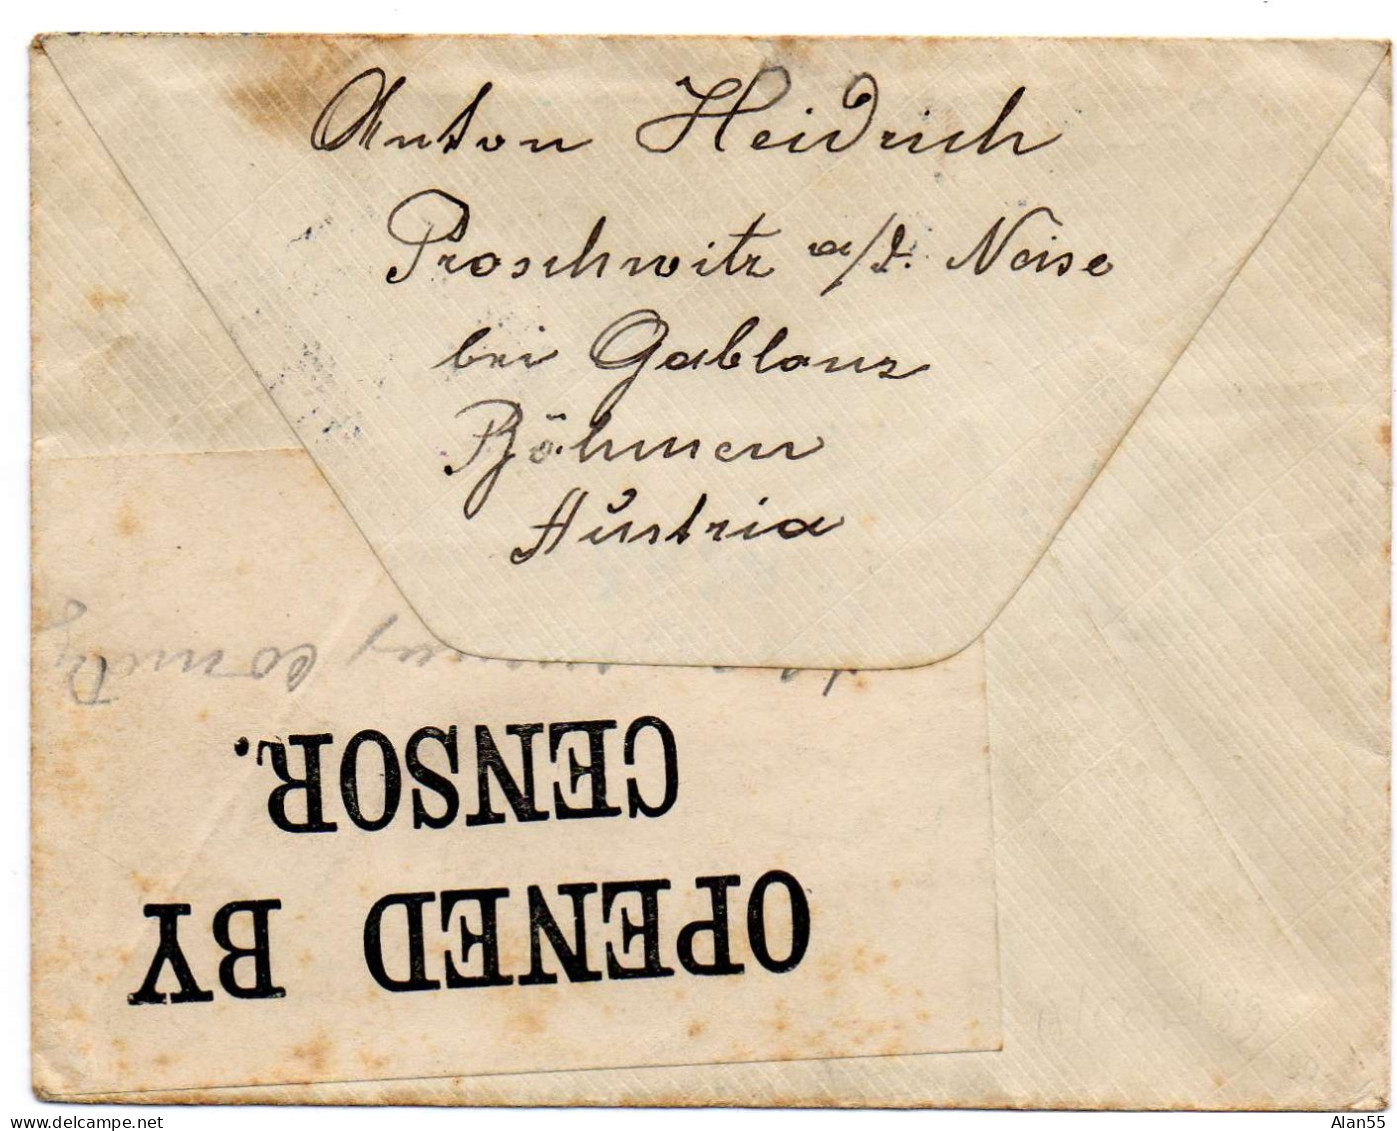 Anton Heidrich
Proschwitz a/d. Neise
bei Gablonz
Böhmen
Austria
OPENED BY
CENSOR.
delcampe.net
Alan55